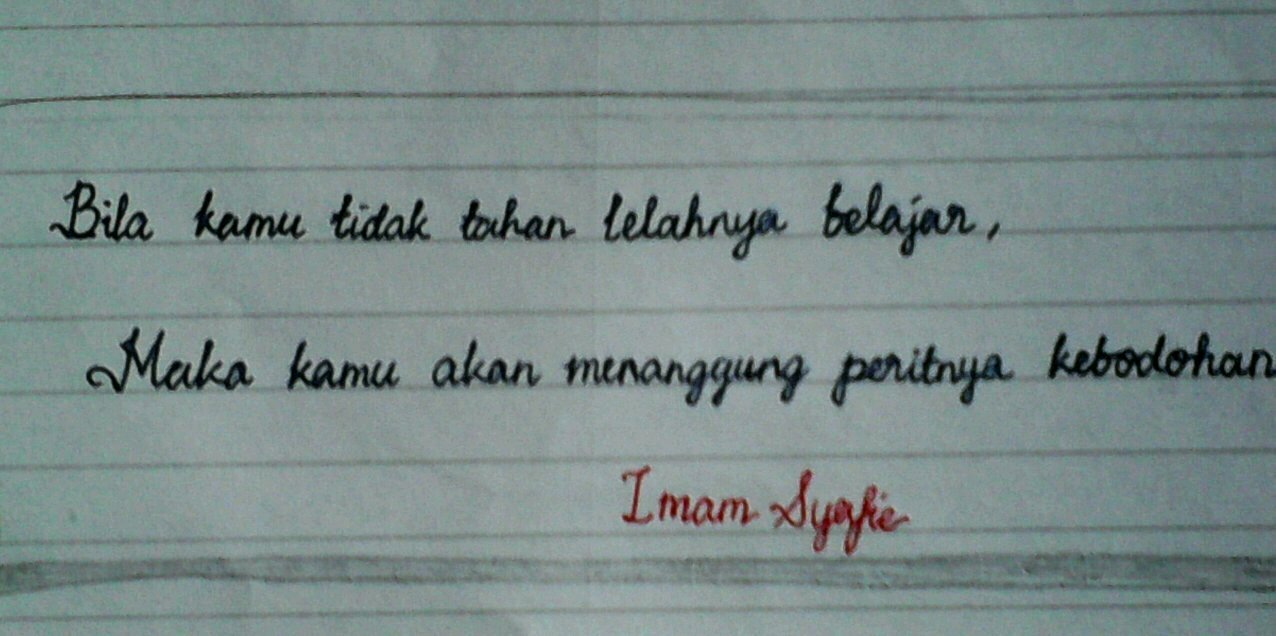 Bila kamu tidak tahan lelahnya belajar,
Maka kamu akan menanggung peritnya kebodohan
Imam Syafie